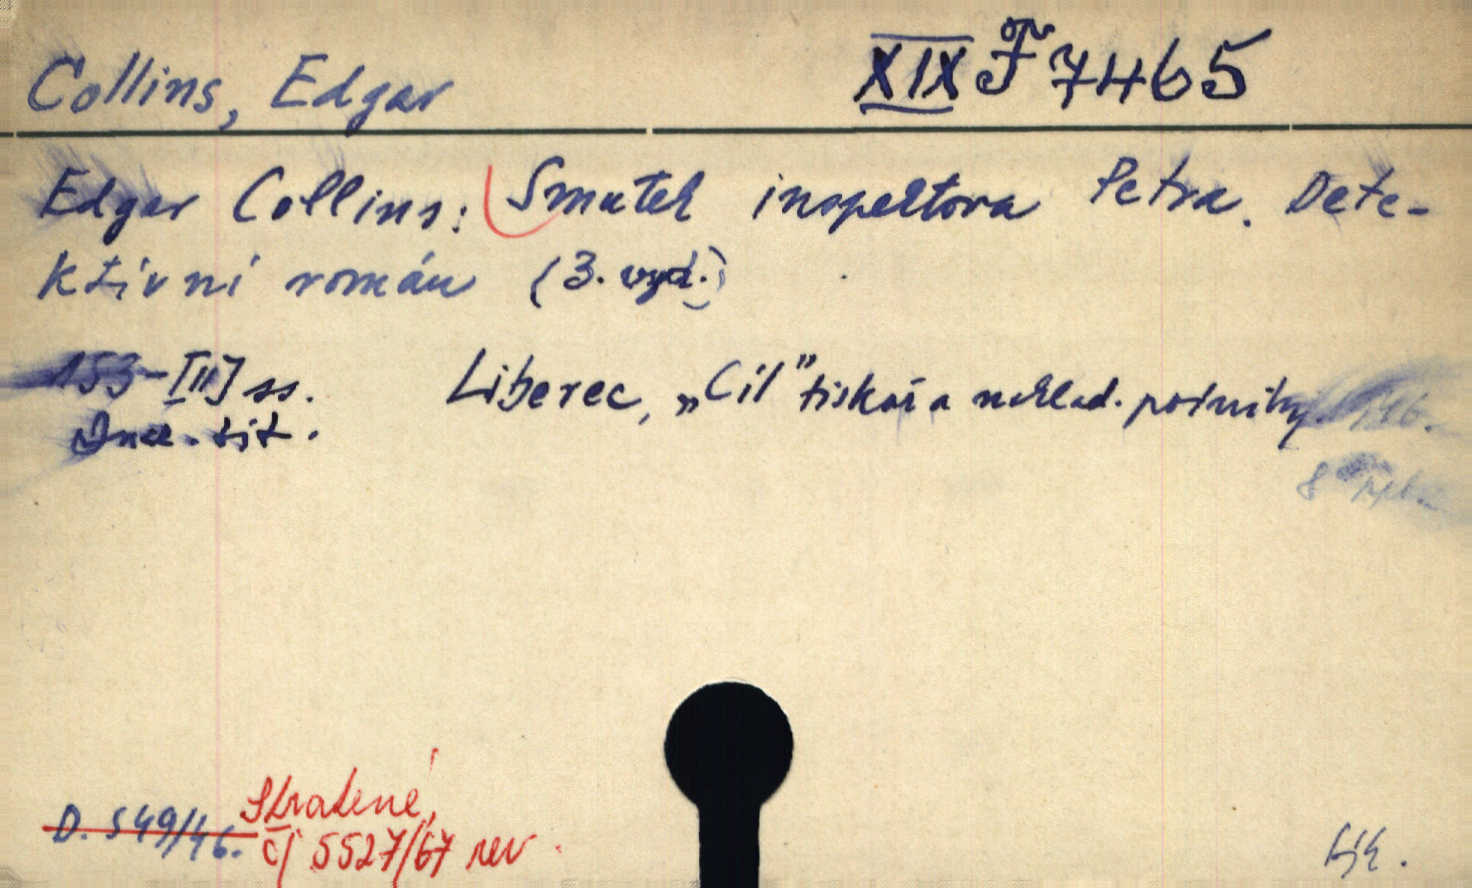 Collins, Edgar
XIX F 7465
Edgar Collins: Smutek inspektora Petra. Dete-
ktivní román (3. vyd.)
153-[III] ss.
Liberec, „Cíl" tiskař. a naklad. podniky
tit.
8°
D. 549/46.
Stratené,
čj 5527/67 rev